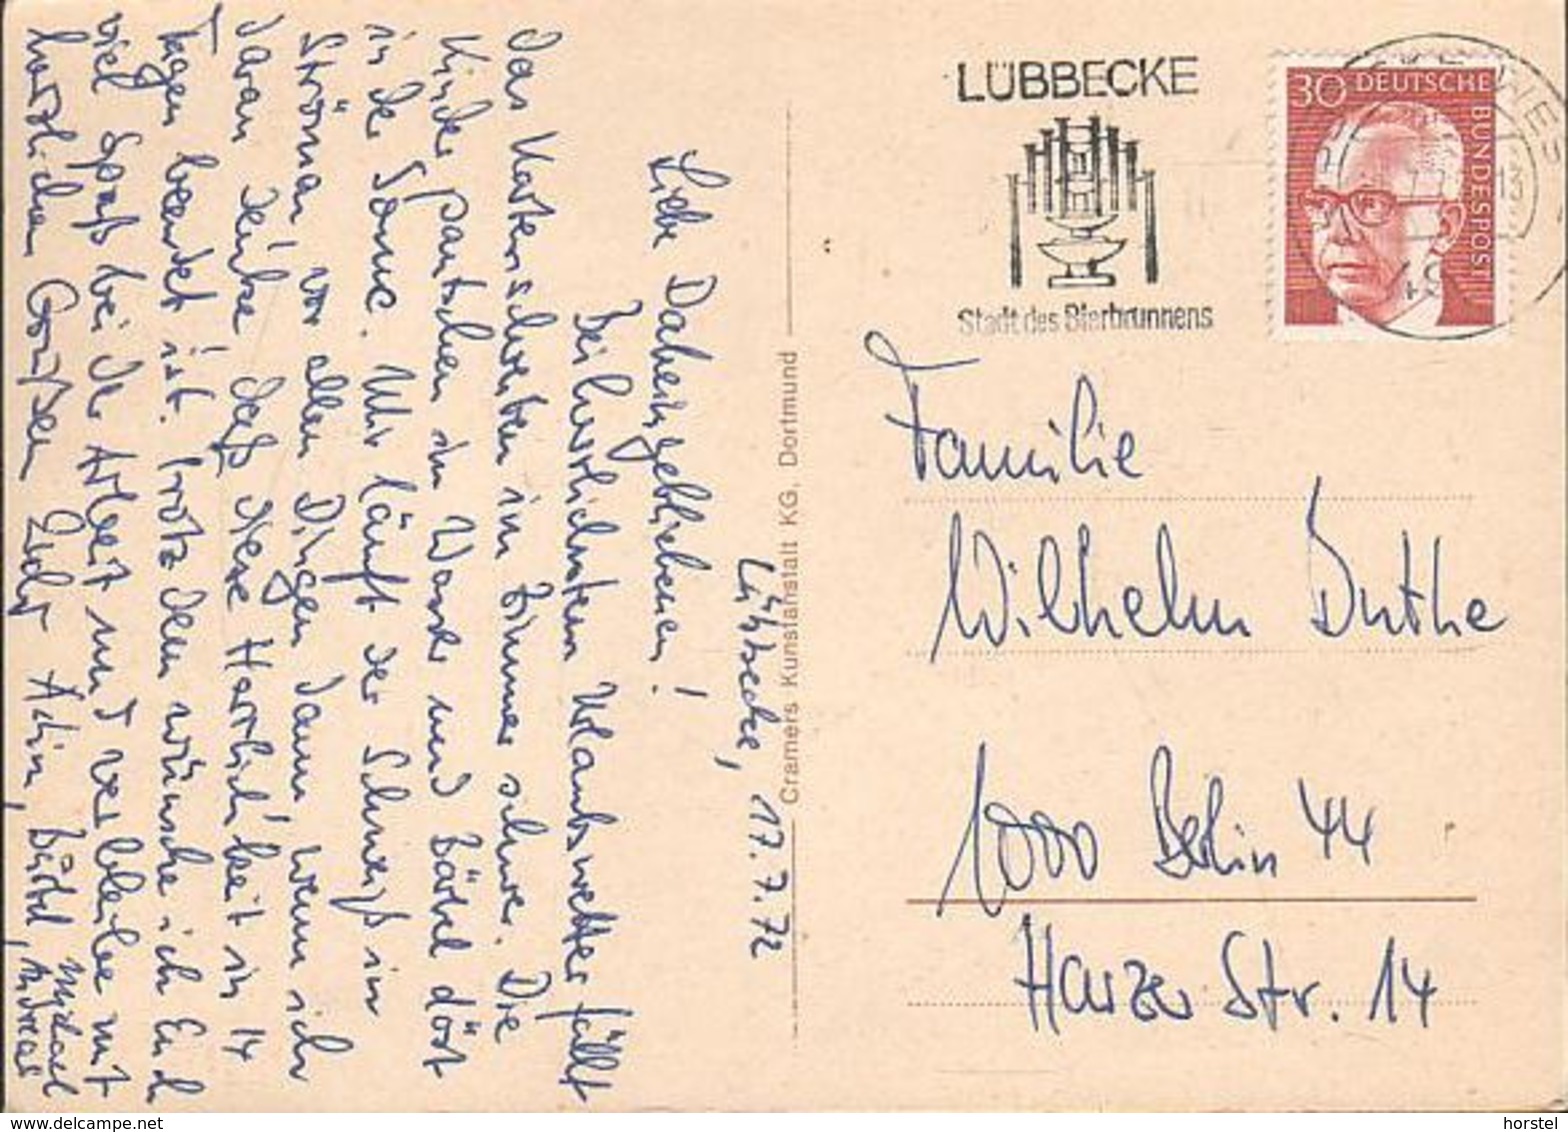 Lübbecke, 17.7.72
Liebe Daheimgebliebenen!
Bei herrlichstem Urlaubswetter fällt
das Kartenschreiben im Zimmer schwer. Die
Kinder pantschen im Wasser und Bärbel döst
in der Sonne. Mir läuft der Schweiß in
Strömen vor allen Dingen dann wenn ich
daran denke daß diese Herrlichkeit in 14
Tagen beendet ist. Trotz dem wünsche ich Euch
viel Spaß bei der Arbeit und verbleibe mit
herzlichen Grüßen Euer Achim, Bärbel, Michael
Andreas
Cramers Kunstanstalt KG, Dortmund
LÜBBECKE
Stadt des Bierbrunnens
30 DEUTSCHE
BUNDESPOST
49
Familie
Wilhelm Duthe
1000 Berlin 44
Harzer Str. 14
www.delcampe.net
horstel